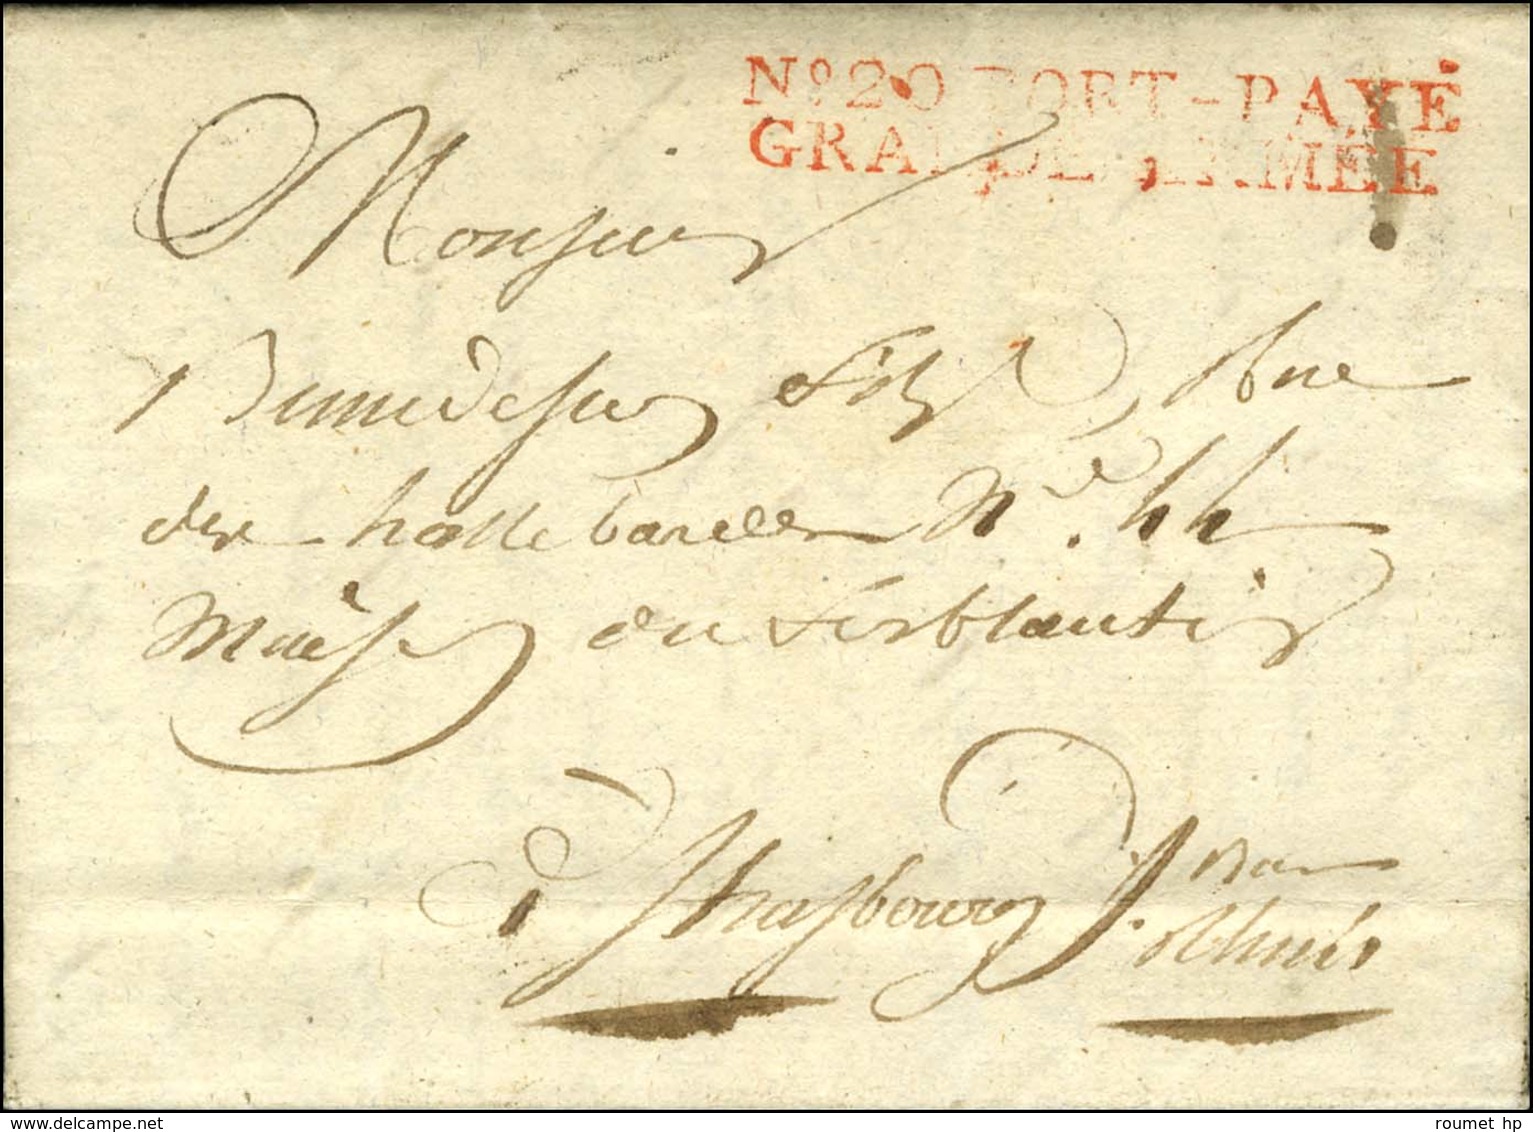 N° 20 PORT-PAYÉ
GRANDE ARMÉE
Monsieur
fils, Rue
des hallebardes N° 44
du ferblantier
à Strasbourg
Bas
Rhin
delcampe.net
roumet hp